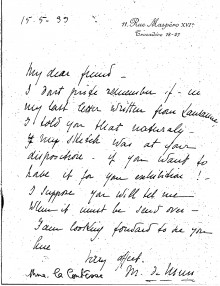 15-5-37
11, Rue Maspéro XVIe
Trocadéro 18-27
My dear friend -
I don't remember if - in
my last letter written from Lausanne
I told you that naturaly -
my sketch was at your
disposition - if you want to
have it for your exhibition ! -
I suppose you will tell me
When it must be send over -
I am looking forward to see you
here
Very aff.
M. de